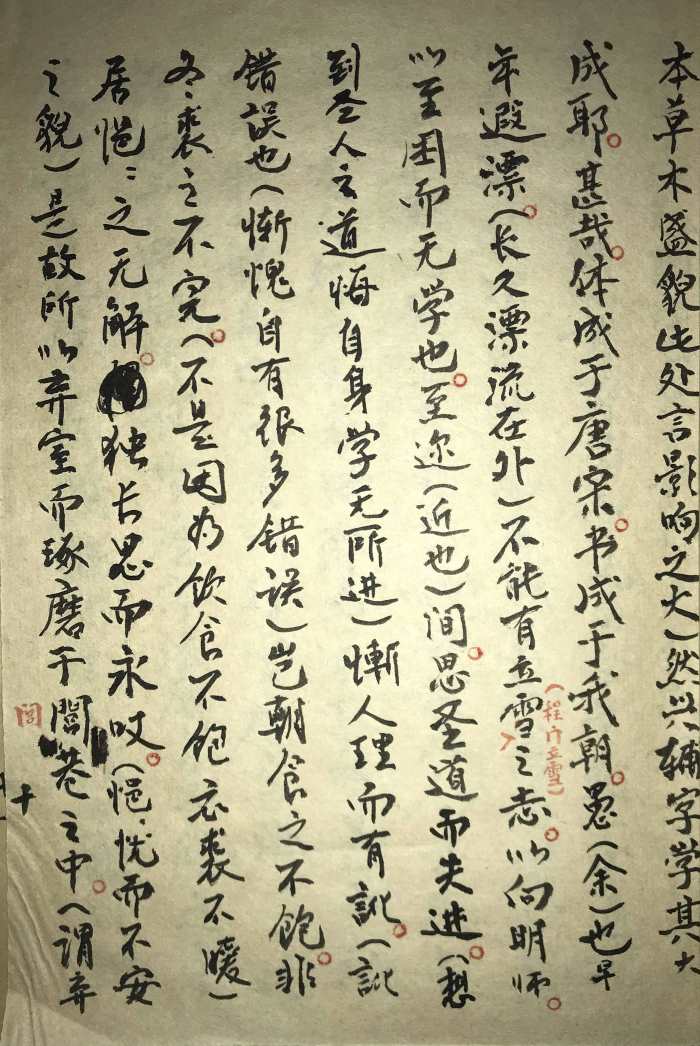 本草木盛貌此处言影响之大)然兴辅字学其大
成耶。甚哉。体成于唐宋。书成于我朝。愚(余)也早
年遐漂。(长久漂流在外)不能有立雪之志。以向明师。
(程门立雪)
以至困而无学也。至迩(近也)间。思圣道而失进。(想
到圣人之道悔自身学无所进)惭人理而有訛。(訛
错误也(惭愧自有很多错误)岂朝食之不饱。非
冬裘之不完。(不是因为饮食不饱衣裘不暖)
居悒〻之无解。独长思而永叹。(悒忧而不安
之貌)是故所以弃室而琢磨于闾巷之中。(谓弃
闾
十